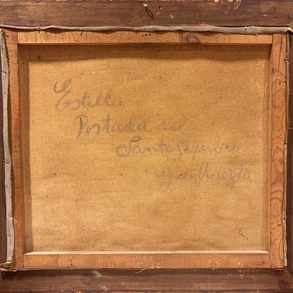 Estella
Portada del
Santo Sepulcro